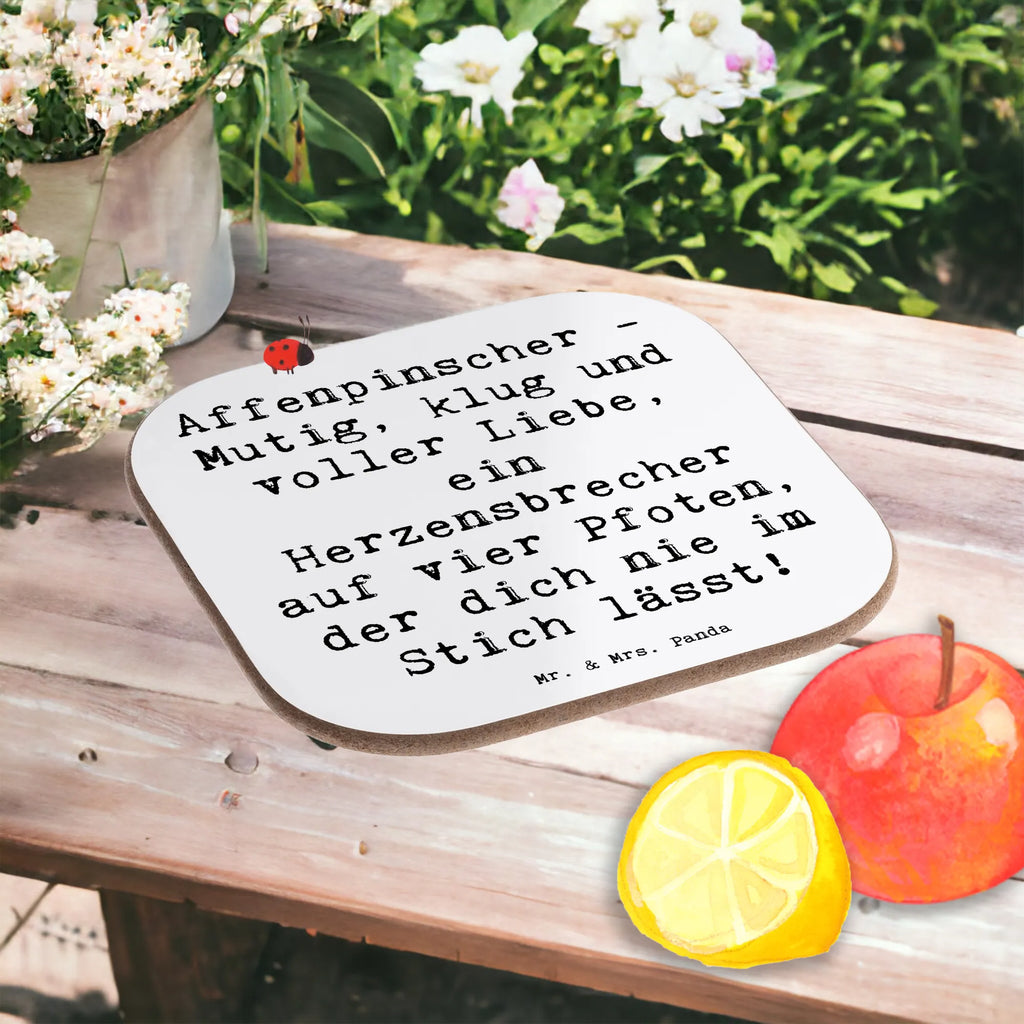 Affenpinscher –
Mutig, klug und
voller Liebe,
ein
Herzensbrecher
auf vier Pfoten,
der dich nie im
Stich lässt!
Mr. & Mrs. Panda